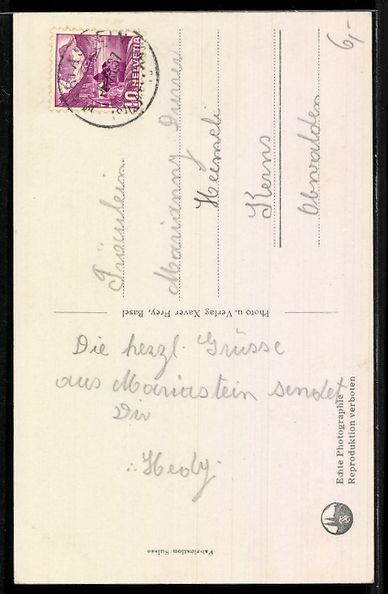 Die herzl. Grüsse
aus Mariastein sendet
Dir
Hedy.
Fräulein
Marianny Durrer
Heimeli
Kerns
Obwalden
6,-
HELVETIA
10
Photo u. Verlag Xaver Frey, Basel
Echte Photographie
Reproduktion verboten
Fabrication Suisse